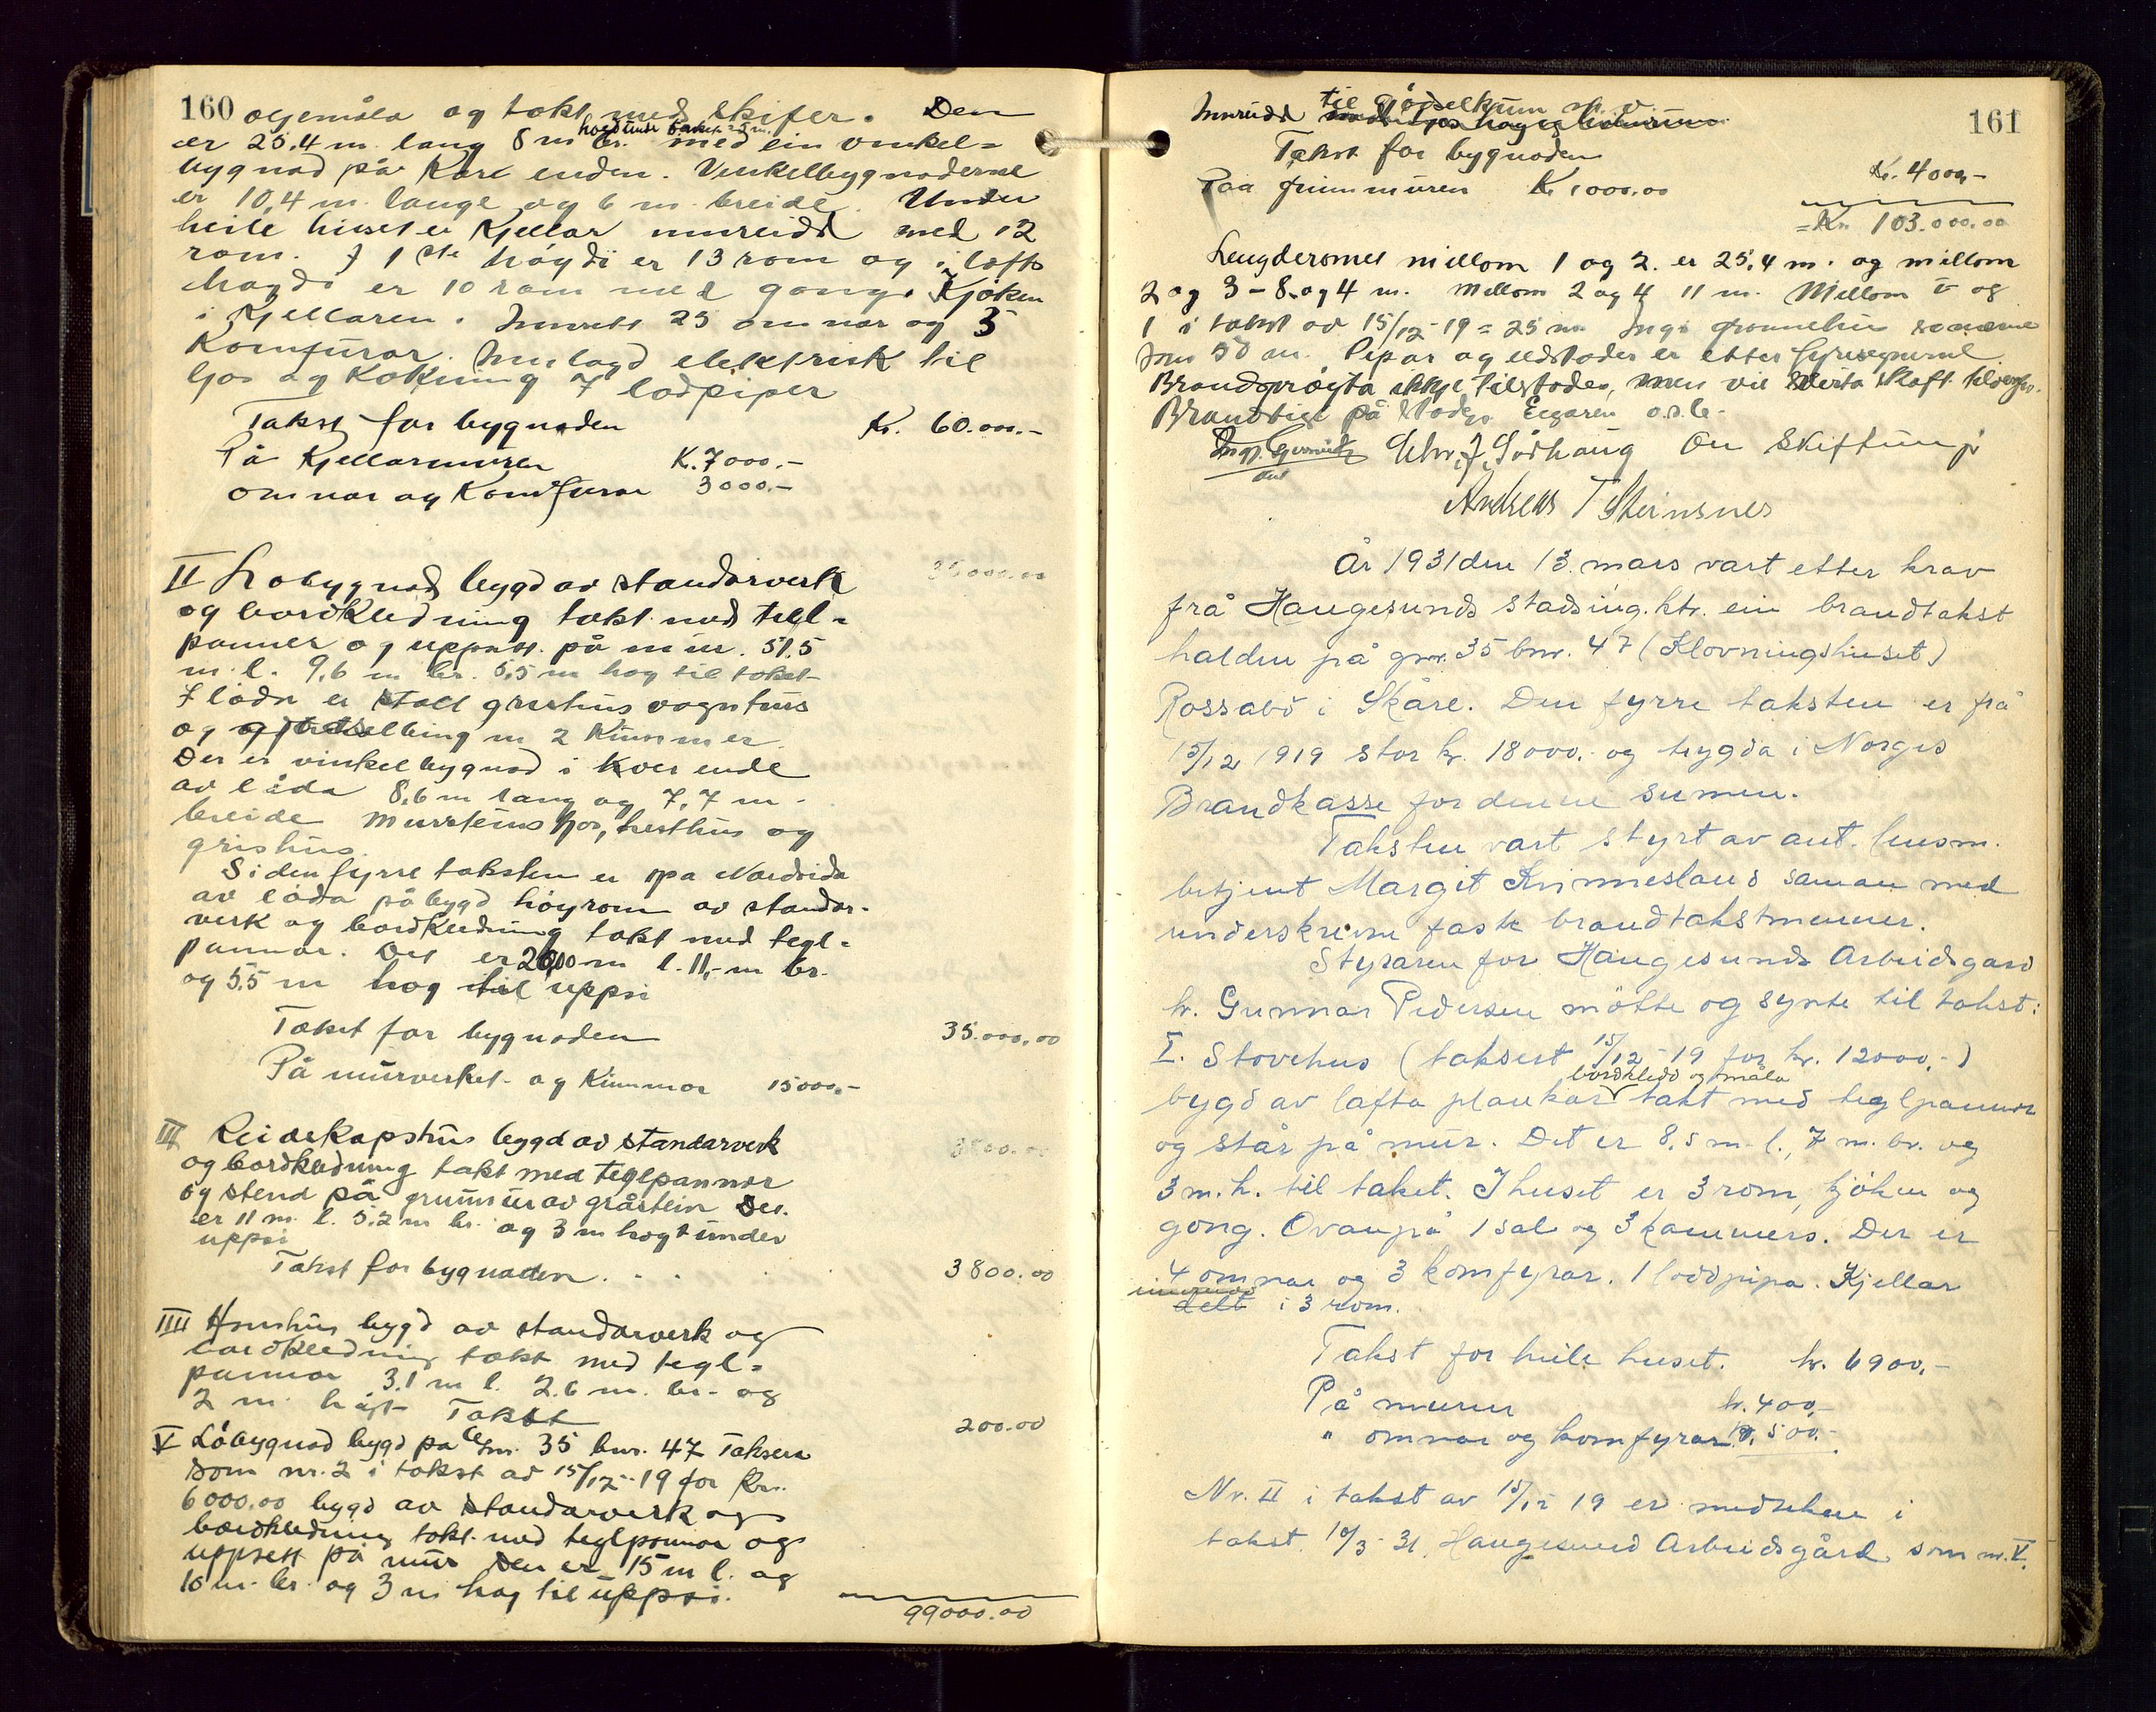 160 ogemåla og tokt med skifer. Den
høgd under taket
er 25.4 m. lang 8 m br. med ein vinkel=
bygnad på Kvar enden. Vinkelbygnaderne
er 10,4 m. lange og 6 m. breide. Under
heile huset er Kjellar innreidd med 12
rom. I 1ste høgdi er 13 rom og i lofts
høgdi er 10 rom med gong. Kjøken
i Kjellaren. Innsett 25 omnar og 5
Komfurar. Innlagd elektrisk til
ljos og Kokning 7 lodpiper
Takst for bygnaden Kr. 60.000.-
På Kjellarmuren K. 7000.-
omnar og Komfurar 3000.-
II Lobygnad bygd av standarverk 35000.00
og bordkledning tekt med tegl=
panner og uppsatt. på mur. 51.5
m. l. 9,6 m br. 5,5 m høg til taket
I lòda er stall grishus vognhus
og m 2 Kummer.
Der er vinkelbygnad i kver ende
av lòda 8,6 m lang og 7,7 m.
breide Murstens fjos, hesthus og
grishus.
Siden fyrre taksten er på Nordsida
av lòda påbygd høyrom av standar-
verk og bordkledning tekt med tegl=
pannar. Det er 20,00 m l. 11,- m br.
og 5,5 m høg til uppsi
Takst for bygnaden 35.000,00
På murverket og Kummar 15000.-
III Reidskapshus bygd av standarverk 3800.00
og bordkledning takt med teglpannar
og stend på grunnmur av gråstein Det
er 11 m. l. 5,2 m br. og 3 m høgt under
uppsi
Takst for bygnaden. . . 3800.00
IIII Hønshus bygd av standarverk og
bordkledning tekt med tegl=
pannar 3.1 m l. 2.6 m. br. og
2 m. høgt Takst 200.00
V Lòbygnad bygd på Gnr. 35 bnr. 47 Taksera
som nr. 2 i takst av 15/12-19 for Kr.
6000.00 bygd av standarverk og
bordkledning tekt med teglpannar og
uppsett på mur Den er 15 m l. og
10 m. br. og 3 m høg til uppsi.
99000.00
161
til gjødselkum m. v.
Innreidd
Takst for bygnaden Kr. 4000,-
Paa grunnmuren K. 1000.00
= Kr. 103.000.00
Lengderomet millom 1 og 2. er 25,4 m. og millom
2 og 3 - 8. og 4 m. Millom 2 og 4 11 m. Millom V og
1 i takst av 15/12-19 = 25 m Ingi grannehus
som 50 m. Pipar og eldstader er etter fyresegnerne.
Brandsprøyta ikkje tilstades, men vil verta skaft
Brandstige på stades. Eigaren o.s.b.
Chr. J. Sørhaug On Skiftunjr
Andreas T Steinsnes
År 1931 den 13. mars vart etter krav
frå Haugesunds stadsing.ktr. ein brandtakst
halden på gnr. 35 bnr. 47 (Klovningshuset)
Rossabø i Skåre. Den fyrre taksten er frå
15/12 1919 stor kr. 18000.- og trygda i Norges
Brandkasse for denne sumen.
Taksten vart styrt av aut. lensm.
betjent Margit Kvinnesland saman med
underskrivne faste brandtakstmenner.
Styraren for Haugesunds Arbeidsgard
hr. Gunnar Pedersen møtte og synte til takst:
I. Stovehus (taksert 15/12-19 for kr. 12000,-)
bordkledd og måla
bygd av lafta plankar takt med teglpannor
og står på mur. Det er 8,5 m. l., 7 m. br. og
3 m. h. til taket. I huset er 3 rom, kjøken og
gong. Ovanpå 1 sal og 3 kammers. Der er
4 omnar og 3 komfyrar. 1 loddpipa. Kjellar
innreidd
delt i 3 rom.
Takst for heile huset. kr. 6900,-
På muren kr. 400,-
" omnar og komfyrar kr. 500.-
Nr. II i takst av 15/12 19 er medteken i
takst 10/3-31. Haugesund Arbeidsgård som nr. V.